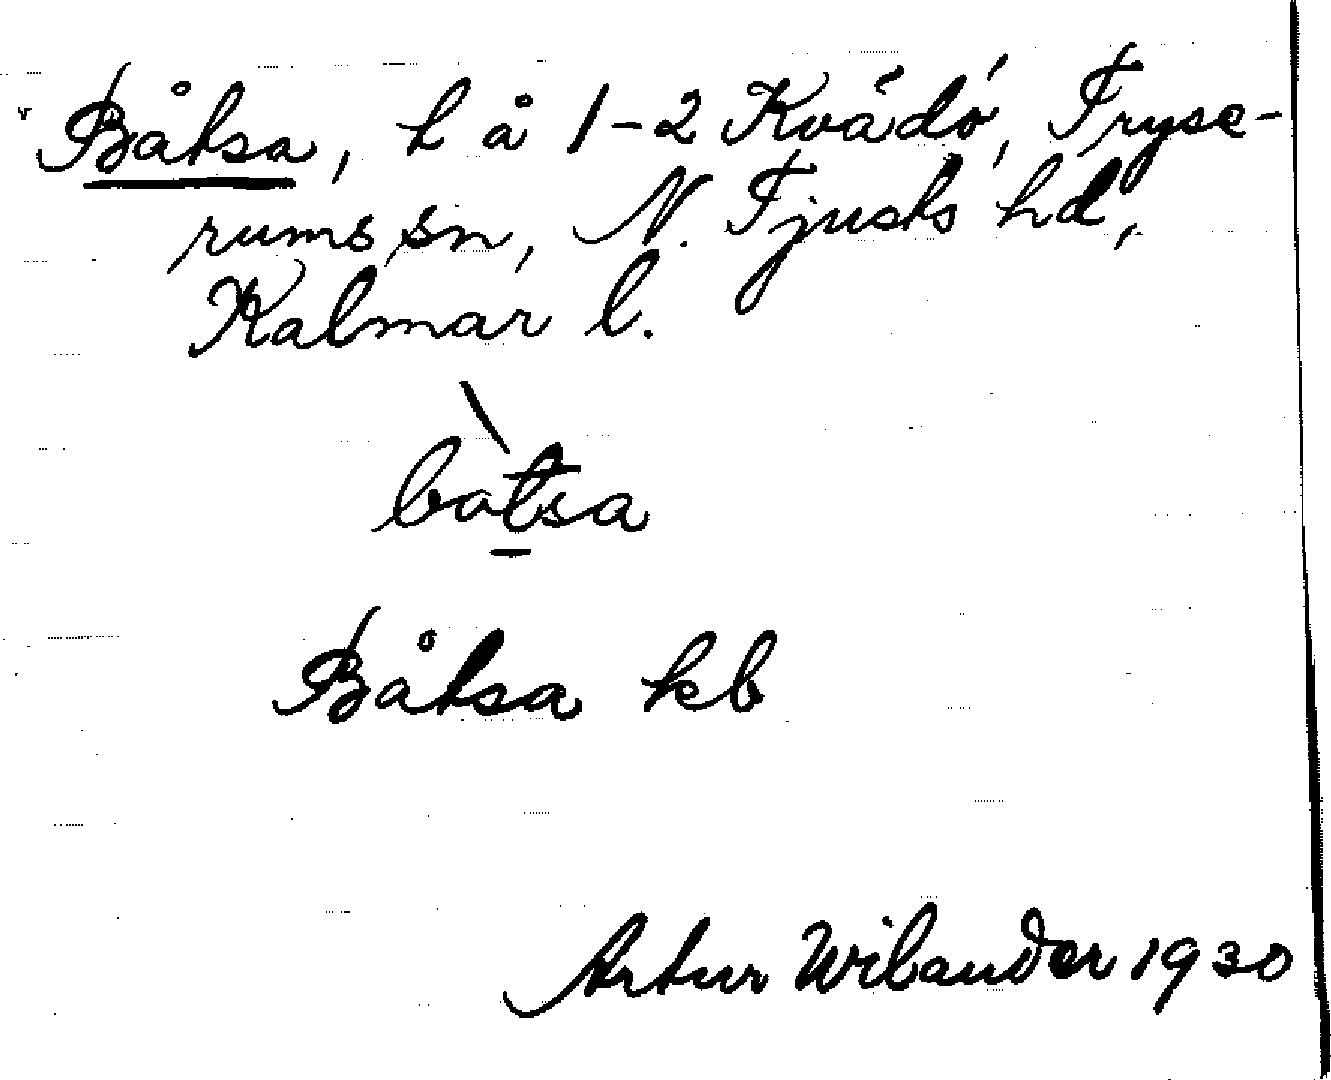 Båtsa, l å 1-2 Kvädö, Tryse-
rums sn, N. Tjusts hd,
Kalmar l.
bòtsa
Båtsa kb
Artur Wilander 1930